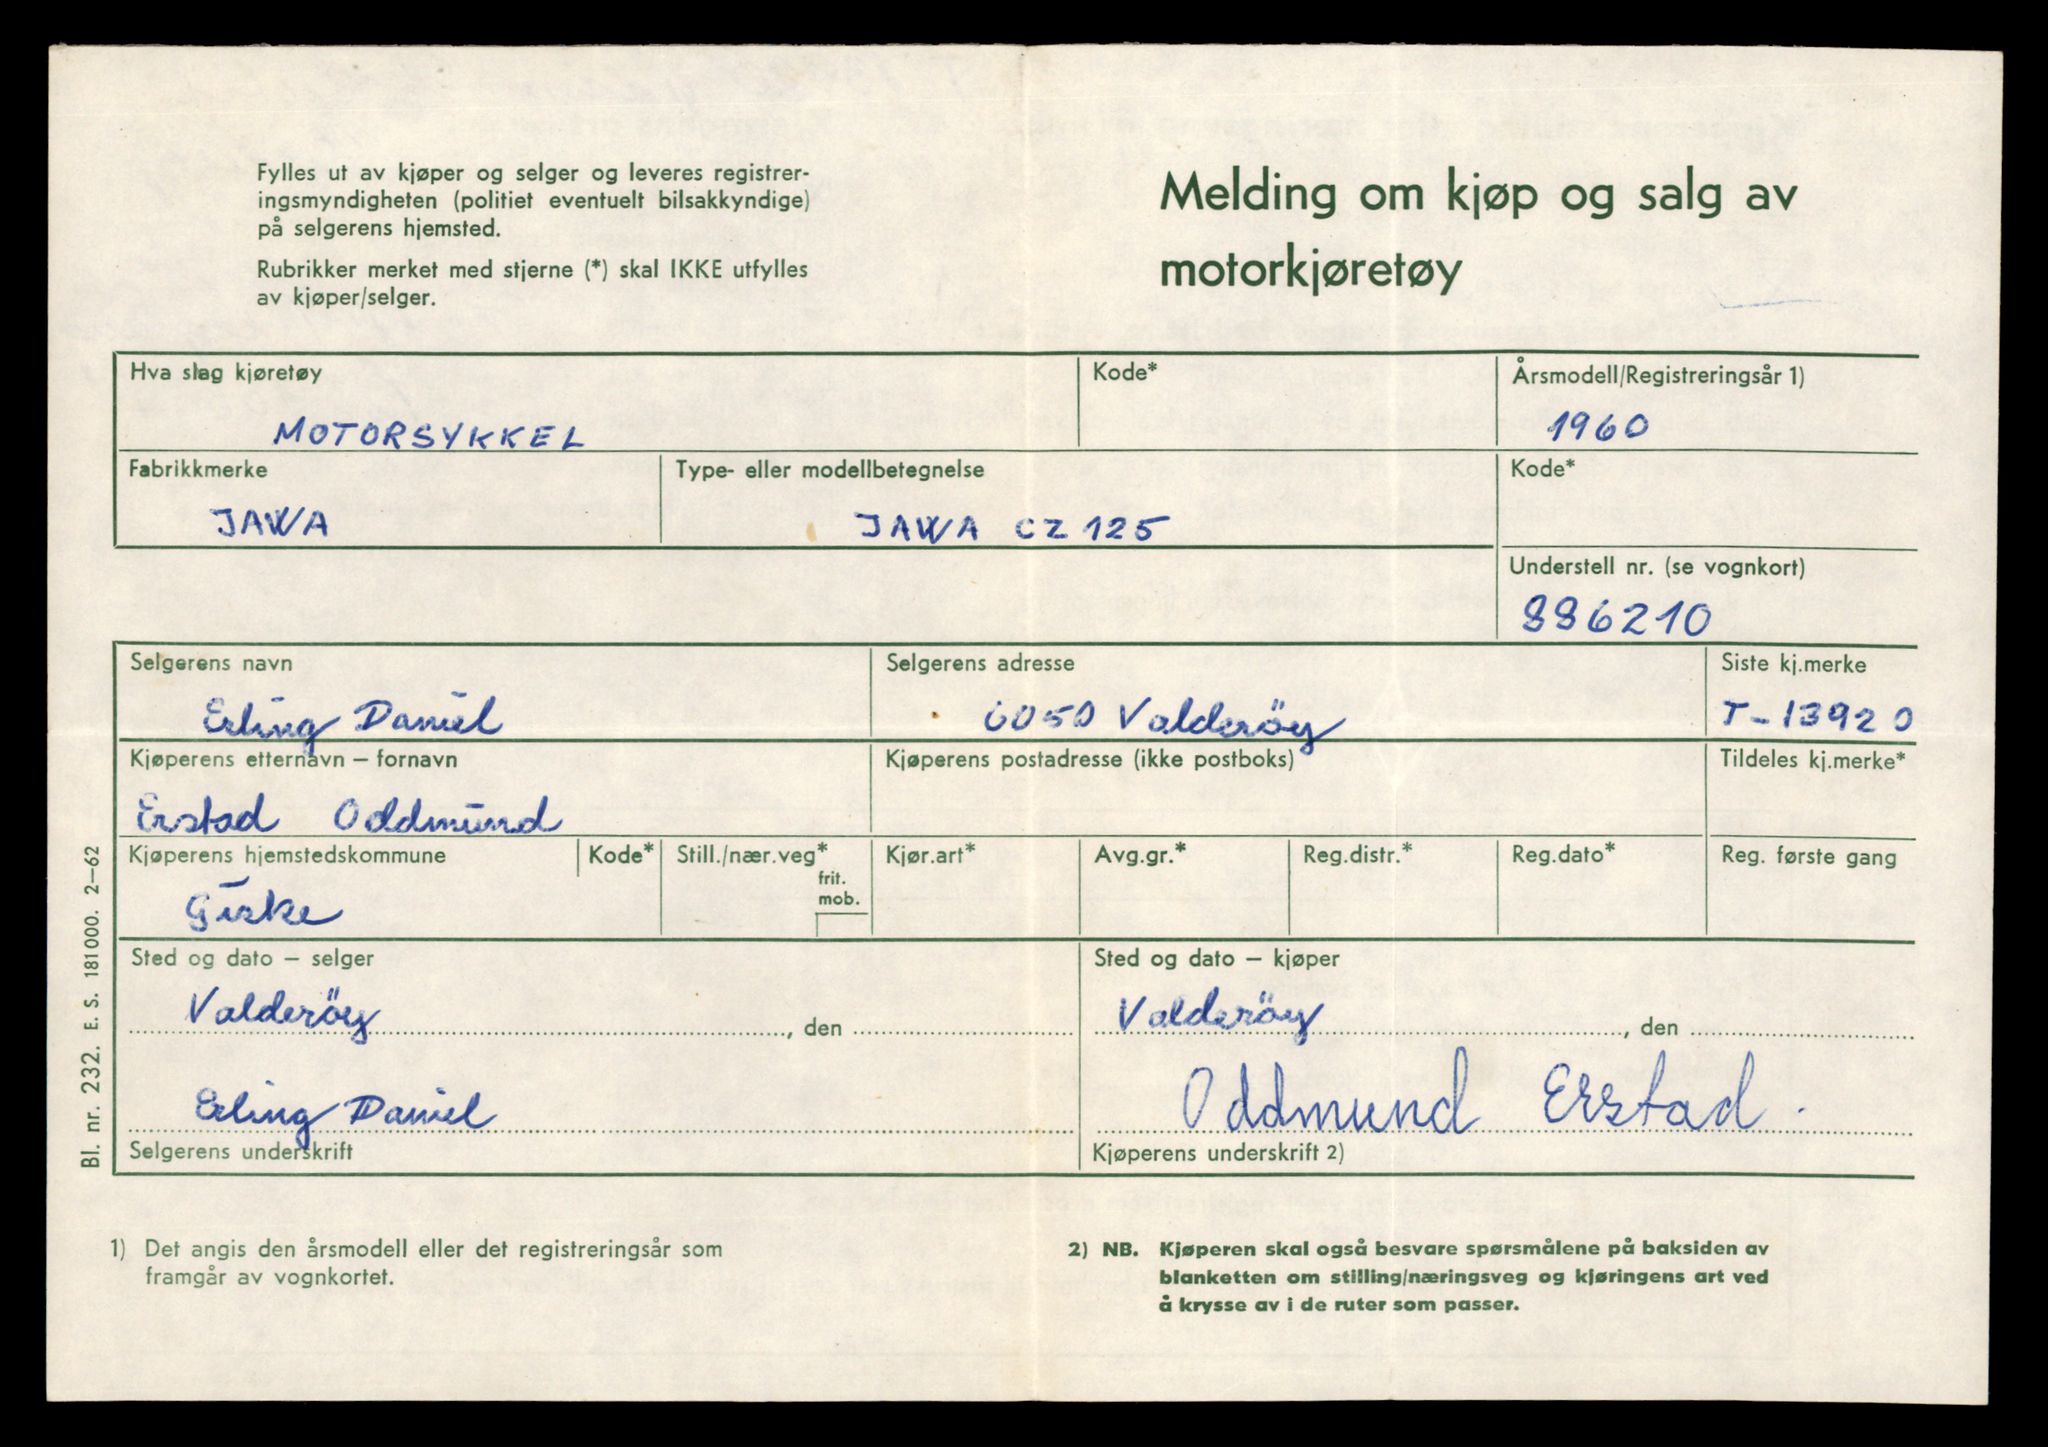 Fylles ut av kjøper og selger og leveres registrer-
ingsmyndigheten (politiet eventuelt bilsakkyndige)
på selgerens hjemsted.
Rubrikker merket med stjerne (*) skal IKKE utfylles
av kjøper/selger.
Melding om kjøp og salg av
motorkjøretøy
Hva slag kjøretøy
MOTORSYKKEL
Kode*
Årsmodell/Registreringsår 1)
1960
Fabrikkmerke
JAWA
Type- eller modellbetegnelse
JAWA CZ 125
Kode*
Understell nr. (se vognkort)
886210
Selgerens navn
Erling Daniel
Selgerens adresse
6050 Valderöy
Siste kj.merke
T-13920
Kjøperens etternavn – fornavn
Erstad Oddmund
Kjøperens postadresse (ikke postboks)
Tildeles kj.merke*
Kjøperens hjemstedskommune
Giske
Kode*
Still./nær.veg*
frit.
mob.
Kjør.art*
Avg.gr.*
Reg.distr.*
Reg.dato*
Reg. første gang
Sted og dato – selger
Valderöy, den
Erling Daniel
Selgerens underskrift
Sted og dato – kjøper
Valderöy, den
Oddmund Erstad.
Kjøperens underskrift 2)
Bl. nr. 232. E. S. 181 000. 2–62
1) Det angis den årsmodell eller det registreringsår som
framgår av vognkortet.
2) NB. Kjøperen skal også besvare spørsmålene på baksiden av
blanketten om stilling/næringsveg og kjøringens art ved
å krysse av i de ruter som passer.